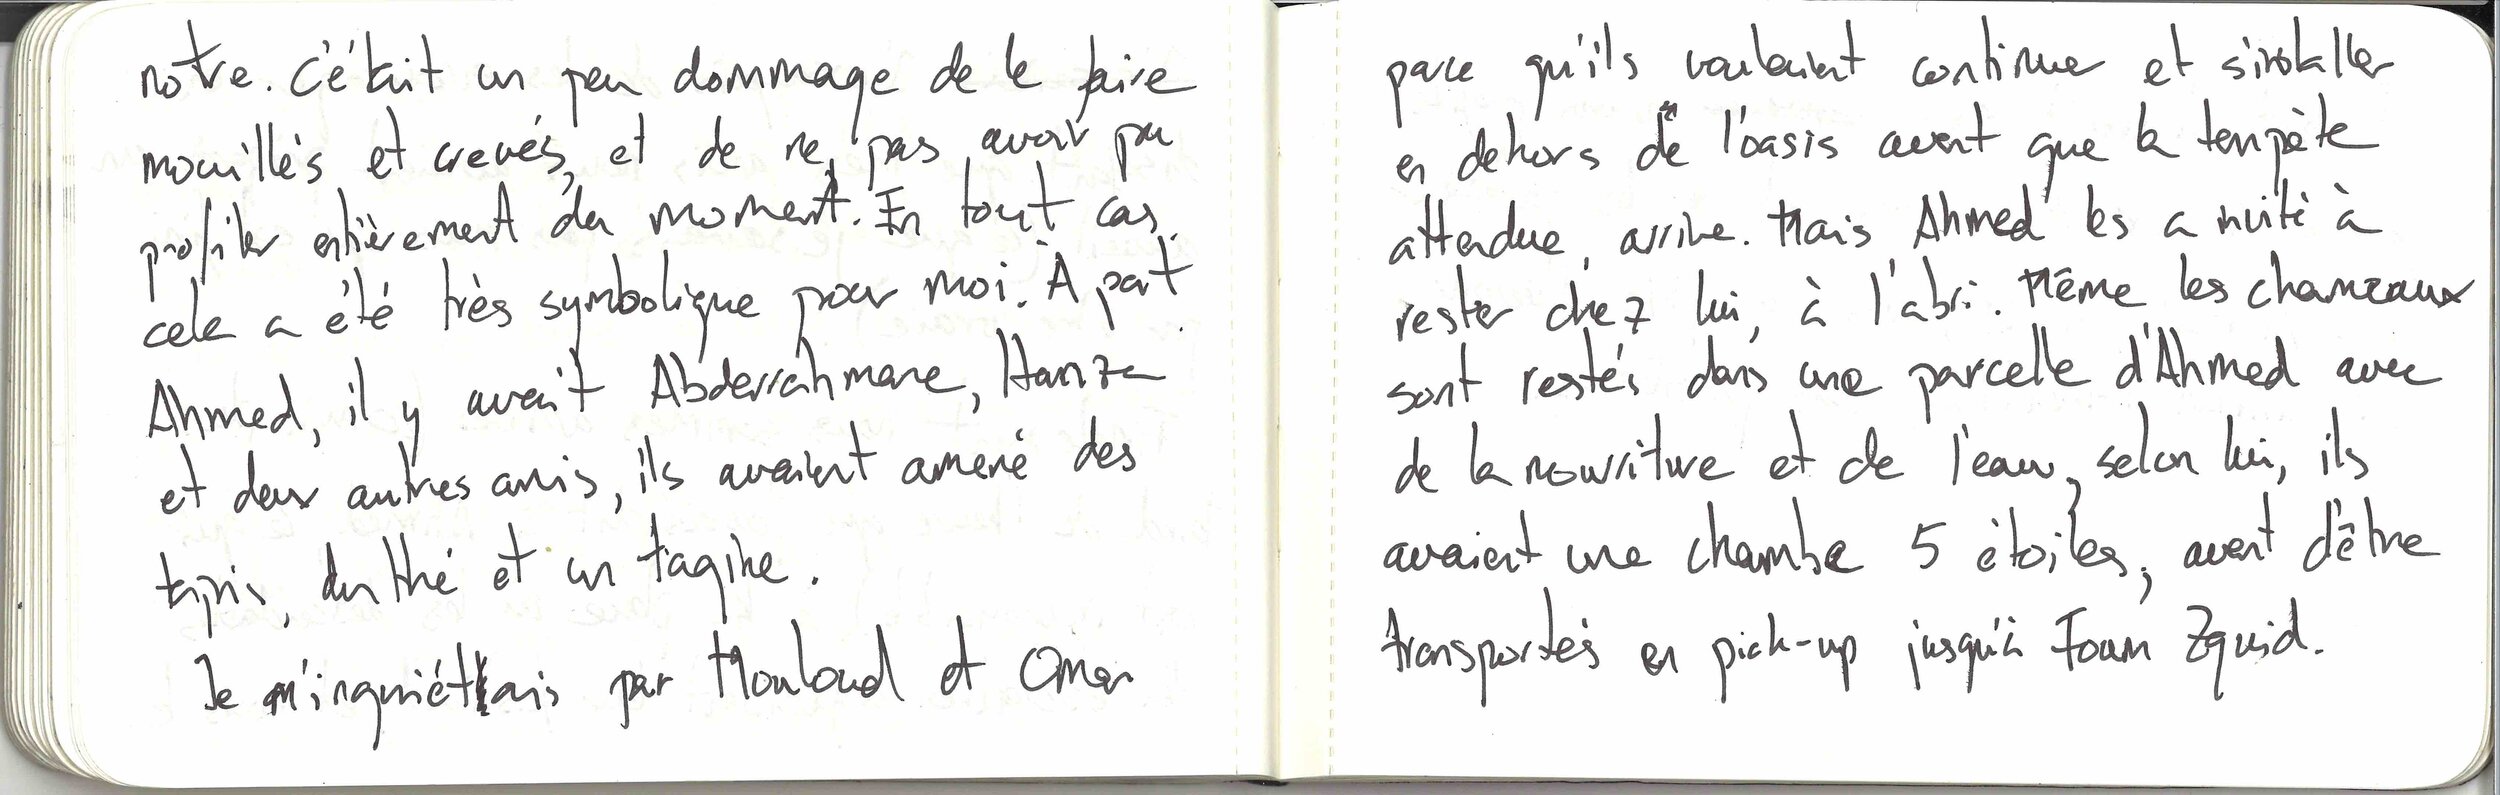 notre. C'était un peu dommage de le faire
mouillés et crevés, et de ne pas avoir pu
profiter entièrement du moment. En tout cas,
cela a été très symbolique pour moi. À part
Ahmed, il y avait Abderrahmane, Hamza
et deux autres amis, ils avaient amené des
tapis, du thé et un tagine.
Je m'inquiétais par Mouloud et Omar
parce qu'ils voulaient continuer et s'installer
en dehors de l'oasis avant que la tempête
attendue, arrive. Mais Ahmed les a invité à
rester chez lui, à l'abri. Même les chameaux
sont restés dans une parcelle d'Ahmed avec
de la nourriture et de l'eau, selon lui, ils
avaient une chambre 5 étoiles, avant d'être
transportés en pick-up jusqu'à Foum Zguid.